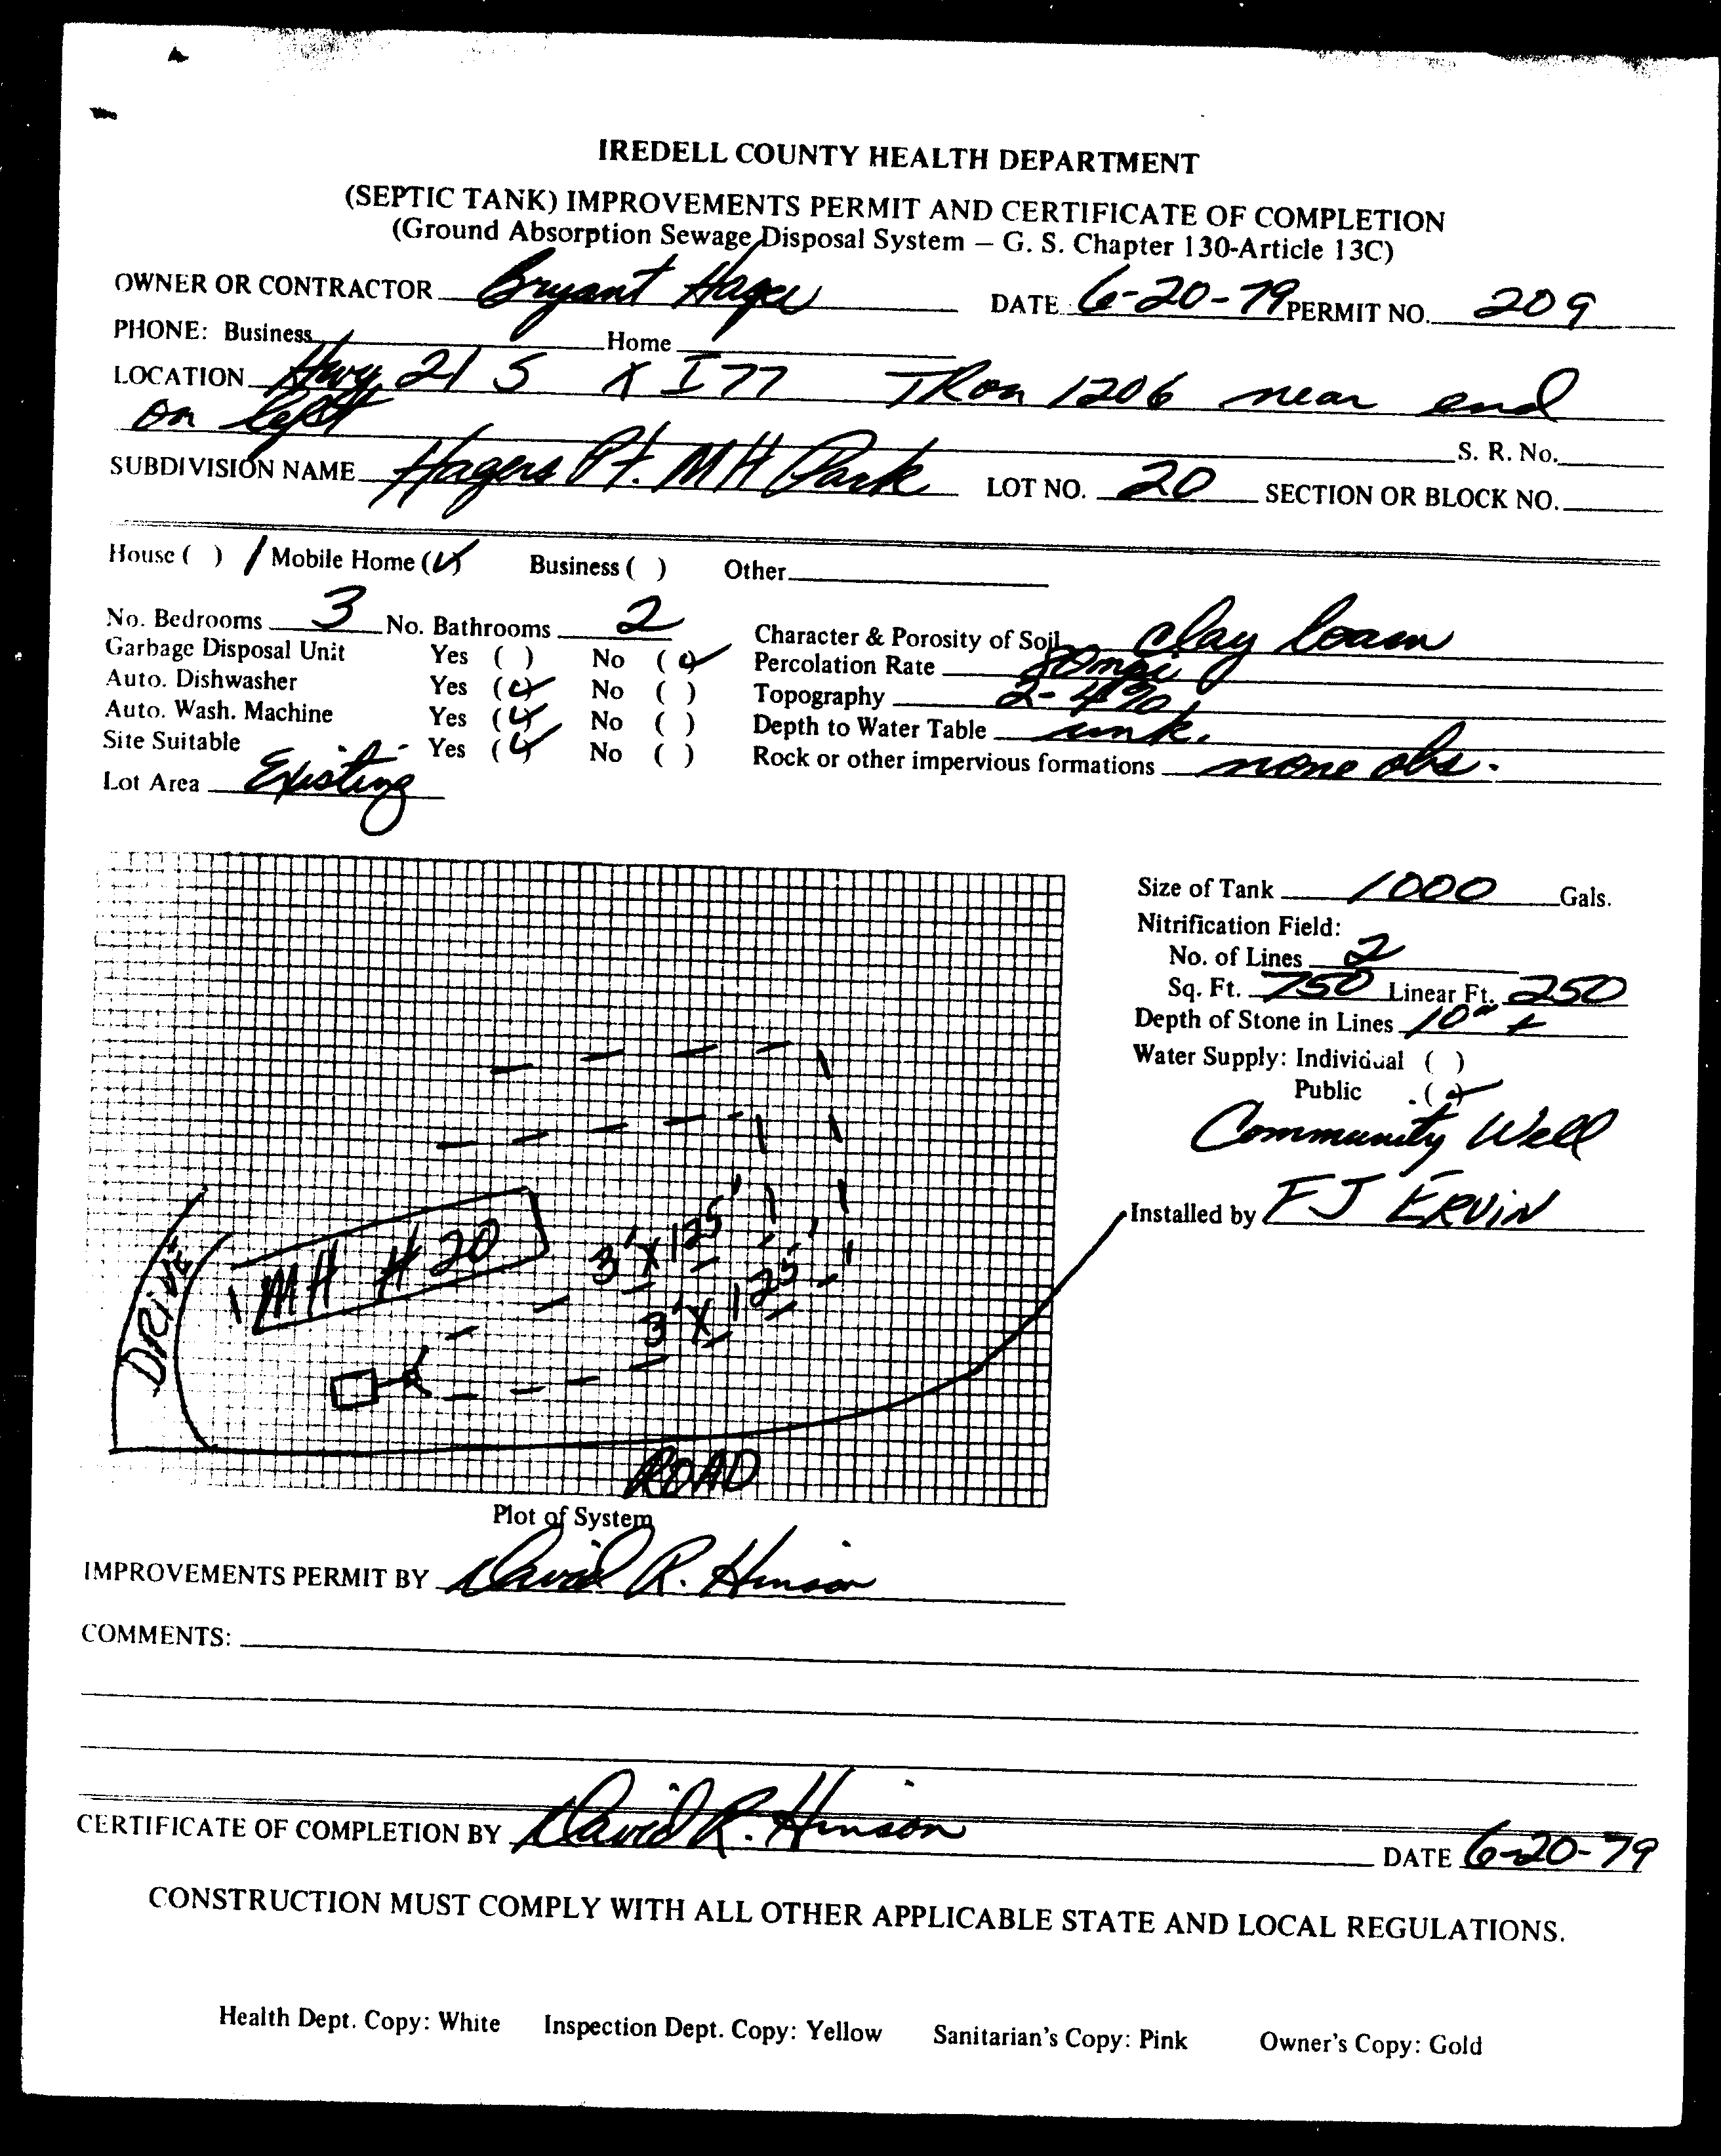 IREDELL COUNTY HEALTH DEPARTMENT
(SEPTIC TANK) IMPROVEMENTS PERMIT AND CERTIFICATE OF COMPLETION
(Ground Absorption Sewage Disposal System – G. S. Chapter 130-Article 13C)
OWNER OR CONTRACTOR Bryant Hager DATE 6-20-79 PERMIT NO. 209
PHONE: Business Home
LOCATION Hwy 21 S X I 77 TR on 1206 near end
on left
S. R. No.
SUBDIVISION NAME Hagers Pt. MH Park LOT NO. 20 SECTION OR BLOCK NO.
House ( ) / Mobile Home (✓) Business ( ) Other
No. Bedrooms 3 No. Bathrooms 2 Character & Porosity of Soil clay loam
Garbage Disposal Unit Yes ( ) No (✓) Percolation Rate mpi
Auto. Dishwasher Yes (✓) No ( ) Topography 2-4%
Auto. Wash. Machine Yes (✓) No ( ) Depth to Water Table unk.
Site Suitable Yes (✓) No ( ) Rock or other impervious formations none obs.
Lot Area Existing
Size of Tank 1000 Gals.
Nitrification Field:
No. of Lines 2
Sq. Ft. 750 Linear Ft. 250
Depth of Stone in Lines 10" +
Water Supply: Individual ( )
Public (✓)
Community Well
Installed by FJ ERVIN
DRIVE
MH #20
3' X 125'
3' X 125'
ROAD
Plot of System
IMPROVEMENTS PERMIT BY David R. Hinson
COMMENTS:
CERTIFICATE OF COMPLETION BY David R. Hinson DATE 6-20-79
CONSTRUCTION MUST COMPLY WITH ALL OTHER APPLICABLE STATE AND LOCAL REGULATIONS.
Health Dept. Copy: White Inspection Dept. Copy: Yellow Sanitarian's Copy: Pink Owner's Copy: Gold